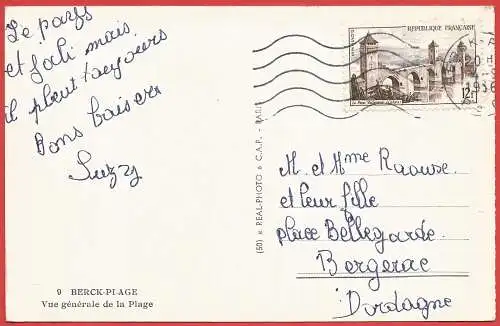 Le pays
et joli mais
il pleut toujours
Bons baisers
Suzy
9 BERCK-PLAGE
Vue générale de la Plage
(50) REAL-PHOTO C.A.P. - PARIS
RÉPUBLIQUE FRANÇAISE
12F
1956
M. et Mme Raouse
et leur fille
place Bellegarde
Bergerac
Dordogne